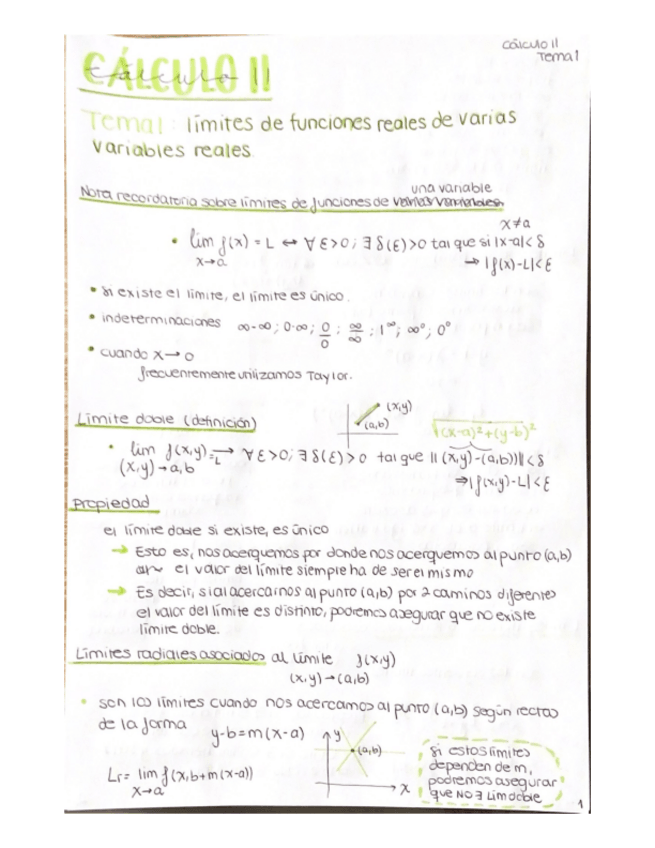 Cálculo II
Tema 1
CÁLCULO II
Tema 1: límites de funciones reales de varias
variables reales.
una variable
Nota recordatoria sobre límites de funciones de varias variables
x≠a
• lim f(x) = L ↔ ∀ ε>0; ∃ δ(ε)>0 tal que si |x-a|< δ
x→a ⇒ |f(x)-L|<ε
• si existe el límite, el límite es único.
• indeterminaciones ∞-∞; 0·∞; 0/0; ∞/∞; 1^∞; ∞⁰; 0⁰
• cuando x→0
frecuentemente utilizamos Taylor.
(x,y)
Límite doble (definición) (a,b) √(x-a)²+(y-b)²
• lim f(x,y) = L ↔ ∀ ε>0; ∃ δ(ε)>0 tal que ||(x,y)-(a,b)||<δ
(x,y)→a,b ⇒|f(x,y)-L|<ε
Propiedad
el límite doble si existe, es único
→ Esto es, nos acerquemos por donde nos acerquemos al punto (a,b)
el valor del límite siempre ha de ser el mismo
→ Es decir, si al acercarnos al punto (a,b) por 2 caminos diferentes
el valor del límite es distinto, podremos asegurar que no existe
límite doble.
Límites radiales asociados al límite f(x,y)
(x,y)→(a,b)
• son los límites cuando nos acercamos al punto (a,b) según rectas
de la forma y-b=m(x-a)
y
(a,b)
x
Lr= lim f(x,b+m(x-a))
x→a
si estos límites
dependen de m,
podremos asegurar
que NO ∃ lim doble
1